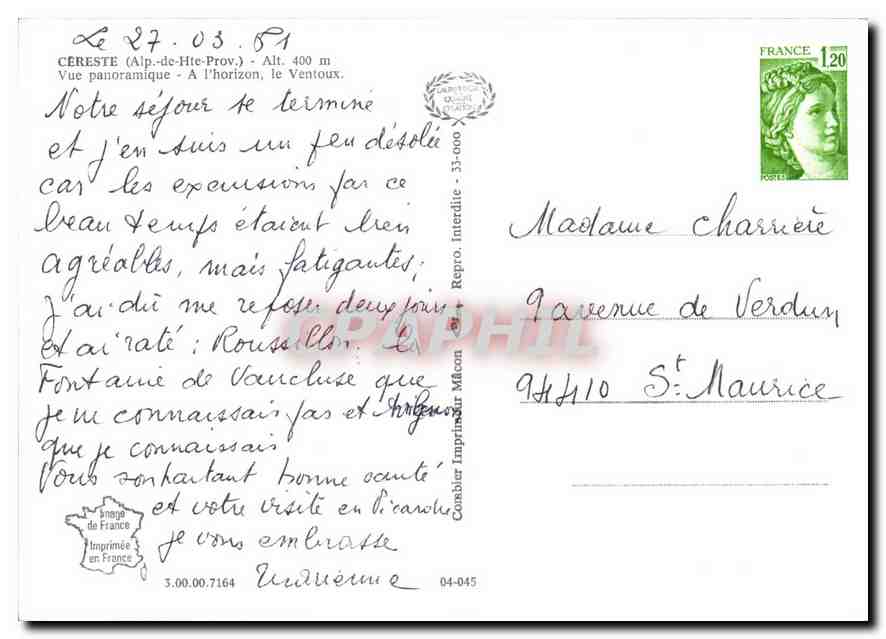 Le 27.03.81
CÉRESTE (Alp.-de-Hte-Prov.) - Alt. 400 m
Vue panoramique - A l'horizon, le Ventoux.
Notre séjour se termine
et j'en suis un peu désolée
car les excursions par ce
beau temps étaient bien
agréables, mais fatigantes;
j'ai dû me reposer deux jours
et ai raté : Roussillon, la
Fontaine de Vaucluse que
je ne connaissais pas et Avignon
que je connaissais
Vous souhaitant bonne santé
et votre visite en Picardie
je vous embrasse
Marienne
Image
de France
Imprimée
en France
3.00.00.7164
04-045
Combier Imprimeur Mâcon
Repro. Interdite - 33-000
CPAPHIL
FRANCE 1,20
POSTES
Madame Charrière
9 avenue de Verdun
94410 St. Maurice